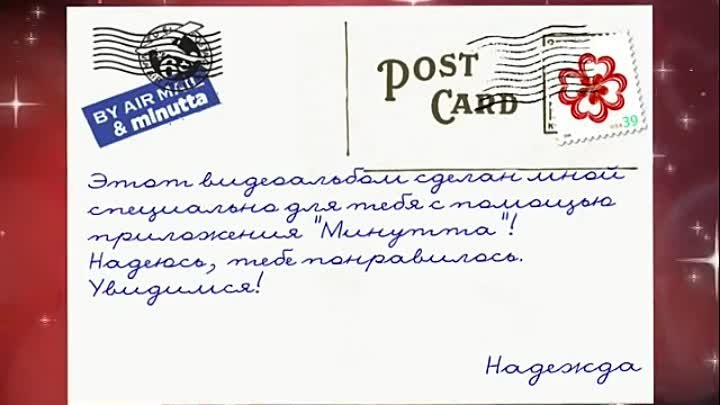 BY AIR MAIL
& minutta
POST
CARD
USA 39
Этот видеоальбом сделан мной
специально для тебя с помощью
приложения "Минутта"!
Надеюсь, тебе понравилось.
Увидимся!
Надежда